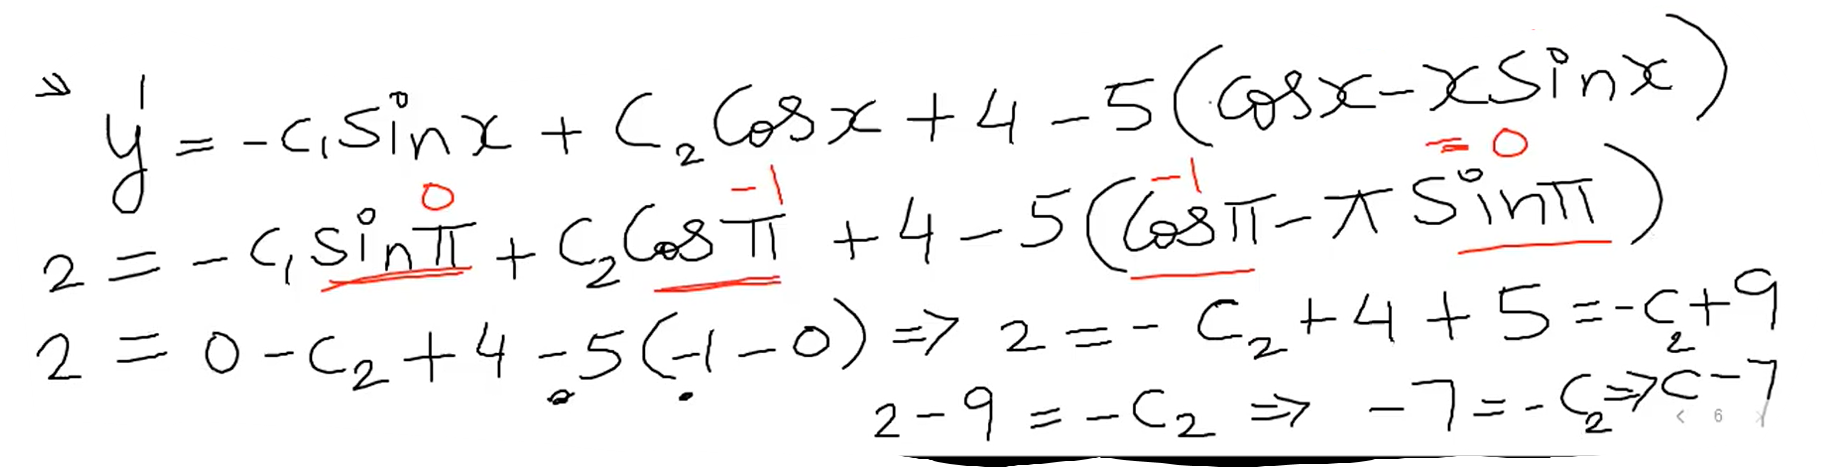 ⇒ y' = -c₁sinx + C₂Cosx + 4 - 5(Cosx - xsinx)
0 -1 -1 = 0
2 = - C₁ sinπ + C₂ Cosπ + 4 - 5(Cosπ - π Sinπ)
2 = 0 - C₂ + 4 - 5(-1 - 0) => 2 = - C₂ + 4 + 5 = -C₂ + 9
2 - 9 = - C₂ => -7 = - C₂ => C - 7
< 6 >